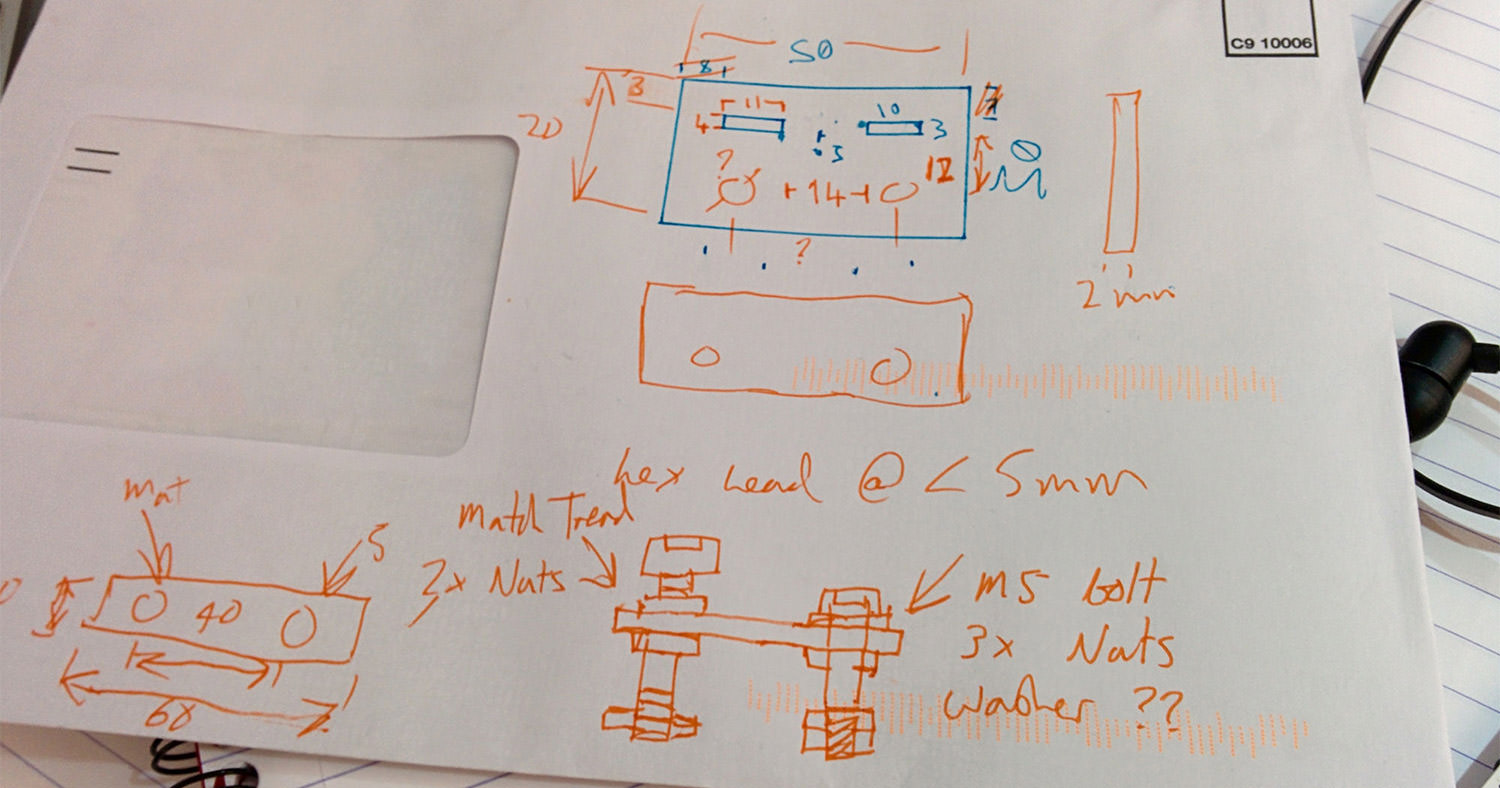 C9 10006
50
8
3
20
11
10
4
3
3
?
12
+14+
?
2 mm
hex head @ < 5mm
mat
Match Tread
3x Nuts
5
40
60
M5 bolt
3x Nuts
washer ??